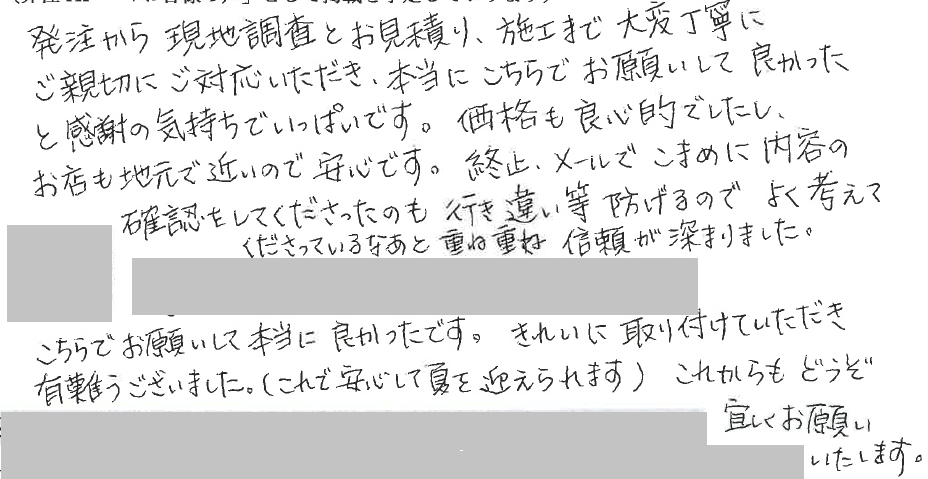 発注から現地調査とお見積り、施工まで大変丁寧に
ご親切にご対応いただき、本当にこちらでお願いして良かった
と感謝の気持ちでいっぱいです。価格も良心的でしたし、
お店も地元で近いので安心です。終止、メールでこまめに内容の
確認をしてくださったのも行き違い等防げるのでよく考えて
くださっているなあと重ね重ね信頼が深まりました。
こちらでお願いして本当に良かったです。きれいに取り付けていただき
有難うございました。(これで安心して夏を迎えられます)これからもどうぞ
宜しくお願い
いたします。